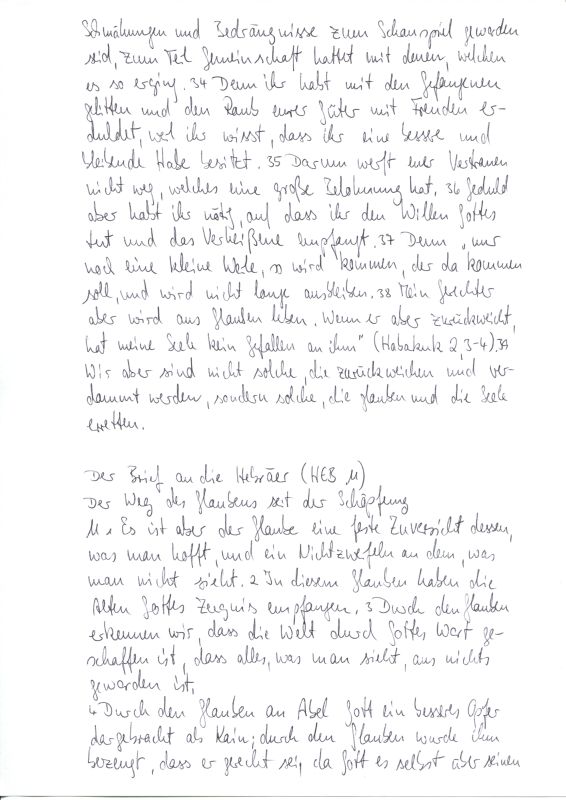 Schmähungen und Bedrängnisse zum Schauspiel geworden
seid, zum Teil Gemeinschaft hattet mit denen, welchen
es so erging. 34 Denn ihr habt mit den Gefangenen
gelitten und den Raub eurer Güter mit Freuden er-
duldet, weil ihr wisst, dass ihr eine bessre und
bleibende Habe besitzt. 35 Darum werft euer Vertrauen
nicht weg, welches eine große Belohnung hat. 36 Geduld
aber habt ihr nötig, auf dass ihr den Willen Gottes
tut und das Verheißene empfangt. 37 Denn "nur
noch eine kleine Weile, so wird kommen, der da kommen
soll, und wird nicht lange ausbleiben. 38 Mein Gerechter
aber wird aus Glauben leben. Wenn er aber zurückweicht,
hat meine Seele kein Gefallen an ihm" (Habakuk 2,3-4). 39
Wir aber sind nicht solche, die zurückweichen und ver-
dammt werden, sondern solche, die glauben und die Seele
erretten.
Der Brief an die Hebräer (HEB 11)
Der Weg des Glaubens seit der Schöpfung
11 1 Es ist aber der Glaube eine feste Zuversicht dessen,
was man hofft, und ein Nichtzweifeln an dem, was
man nicht sieht. 2 In diesem Glauben haben die
Alten Gottes Zeugnis empfangen. 3 Durch den Glauben
erkennen wir, dass die Welt durch Gottes Wort ge-
schaffen ist, dass alles, was man sieht, aus nichts
geworden ist.
4 Durch den Glauben an Abel Gott ein besseres Opfer
dargebracht als Kain; durch den Glauben wurde ihm
bezeugt, dass er gerecht sei, da Gott es selbst über seinen